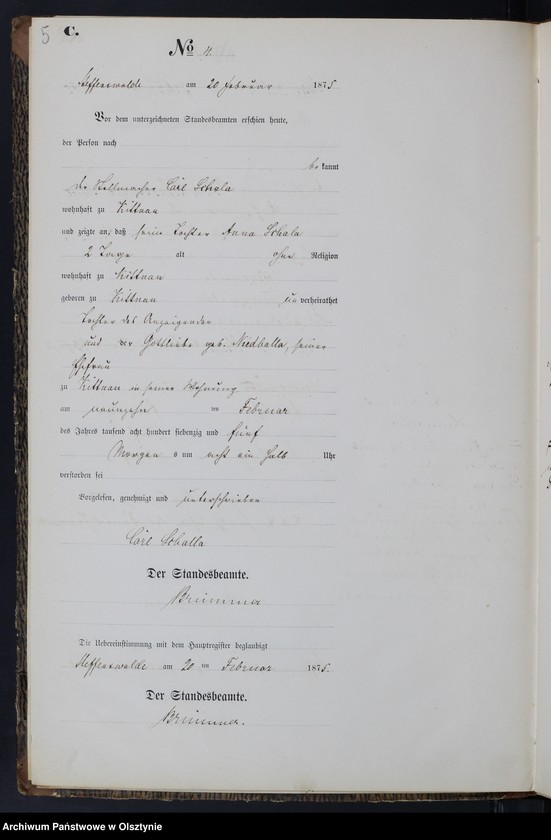 5 C.
No 4.
Steffenswalde am 20 Februar 1875.
Vor dem unterzeichneten Standesbeamten erschien heute,
der Person nach
bekannt
der Stellmacher Carl Schala
wohnhaft zu Kittnau
und zeigte an, daß seine Tochter Anna Schala
2 Tage alt ohne Religion
wohnhaft zu Kittnau
geboren zu Kittnau unverheirathet
Tochter des Anzeigenden
und der Gottliebe geb. Niedballa, seiner
Ehefrau
zu Kittnau in seiner Wohnung
am neunzehn ten Februar
des Jahres tausend acht hundert siebenzig und fünf
Morgens um acht ein halb Uhr
verstorben sei
Vorgelesen, genehmigt und unterschrieben
Carl Schalla
Der Standesbeamte.
Die Uebereinstimmung mit dem Hauptregister beglaubigt
Steffenswalde am 20 ten Februar 1875.
Der Standesbeamte.
Archiwum Państwowe w Olsztynie